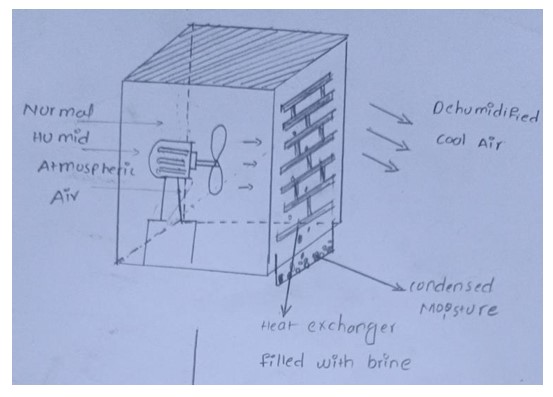 Normal
Humid
Atmospheric
Air
Dehumidified
Cool Air
condensed
Moisture
Heat exchanger
filled with brine